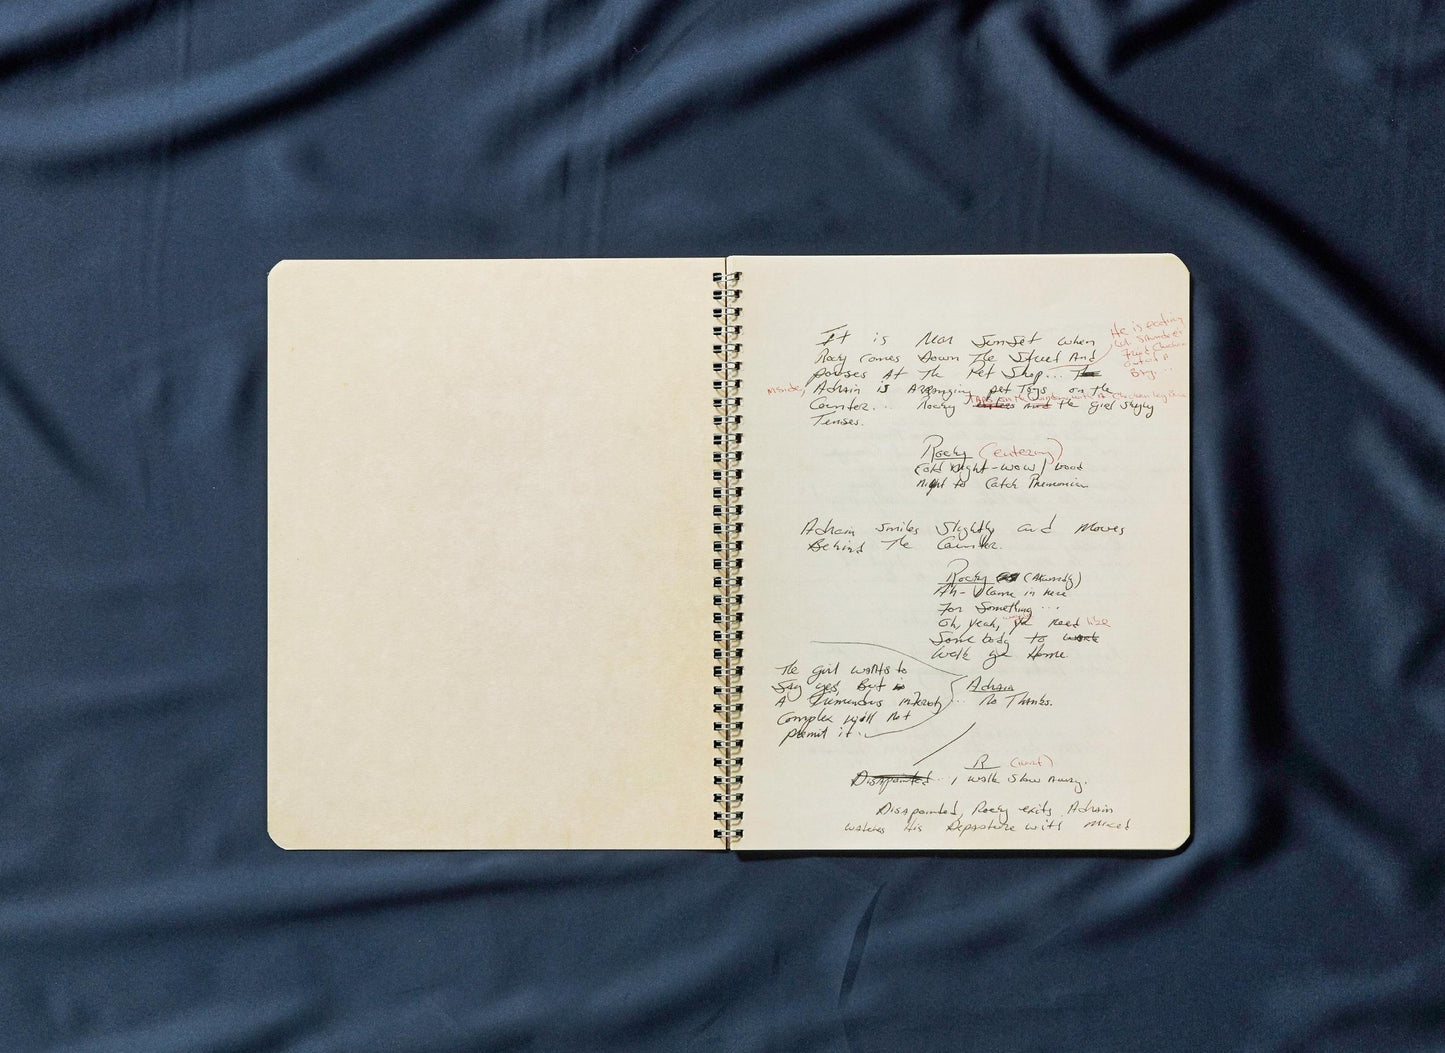 It is Near Sunset when
He is eating
Fried Chicken
out of a
Bag...
Rocky Comes Down The Street And
pauses At The Pet Shop... The
inside, Adrain is Arranging pet Toys on the
Counter... Rocky enters and the girl Shyly
Tenses.
Rocky (entering)
Cold Night - wow! Good
Night to Catch Pneumonia
Adrain smiles Slightly and Moves
Behind The Counter.
Rocky (Akwardly)
Ah - I Came in here
For Something...
Oh, yeah, ya need like
Somebody to walk
Walk ya Home.
The girl wants to
Say yes, But is
A Tremendous
Complex will Not
permit it.
Adrain
... No Thanks.
R
Disappointed.. I walk Slow Away.
Disapointed, Rocky exits. Adrain
watches His Departure with Mixed